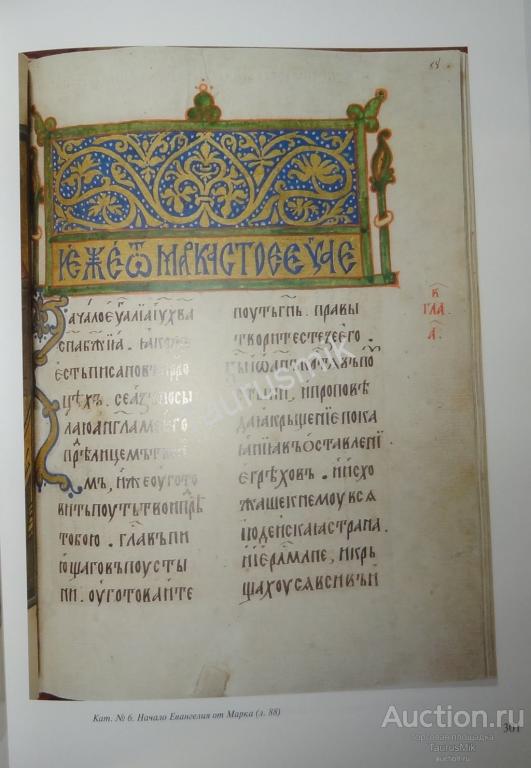 ИЕЖЕ Ѿ МАРКА СТОЕ ЕУАЕ
ЗАЧАЛОЕУАЛІАІУХВА
СНАБЖИА. ІАКОЖЕ
ЕСТЬПИСАНОВЪПРРО
ЦЕХЪ. СЕАЗЪПОСЫ
ЛАЮАНГЛАМОЕГО
ПРѢДЛИЦЕМЪТВОИ
МЪ, ИЖЕОУГОТО
ВИТЬПОУТЬТВОИПРѢ
ТОБОЮ. ГЛАВЪПИ
ЮЩАГОВЪПОУСТЫ
НИ. ОУГОТОВАИТЕ
ПОУТЬГНЬ. ПРАВЫ
ТВОРИТЕСТЕЗЕЕГО
БЫІѠАНЪКРТАХЪПО
УСТЫНИ, ИПРОПОВѢ
ДАІАКРЫЩЕНІЕПОКА
ІАНІІАВЪОСТАВЛЕНІ
ЕГРѢХОВЪ. ИИСХО
ЖАШЕКНЕМОУВСЯ
ІЮДЕИСКАІАСТРАНА.
ИІЕРАМЛНЕ, ИКРЬ
ЩАХОУСЯВСИВЪИ
ГЛА
А
Кат. № 6. Начало Евангелия от Марка (л. 88)
301
taurusmik
Auction.ru
торговая площадка
TaurusMik
auction.ru